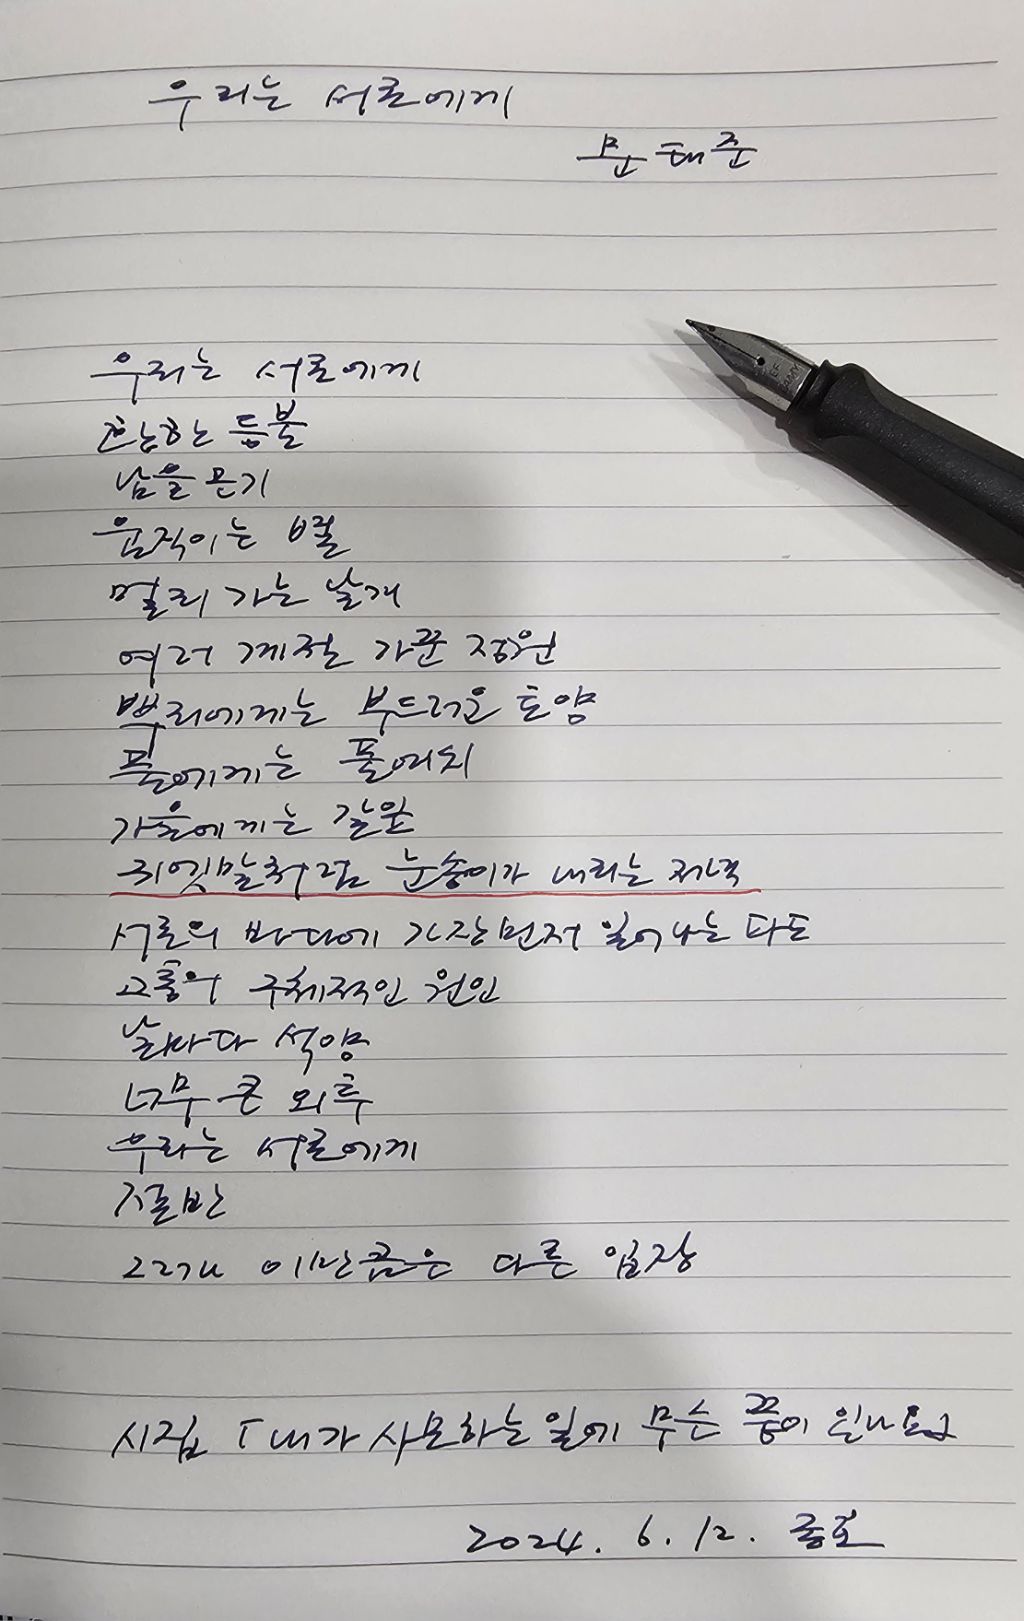 우리는 서로에게
문태준
우리는 서로에게
환한 등불
남을 온기
움직이는 별
멀리 가는 날개
여러 계절 가꾼 정원
뿌리에게는 부드러운 토양
풀에게는 풀여치
가을에게는 갈잎
귀엣말처럼 눈송이가 내리는 저녁
서로의 바다에 가장 먼저 일어나는 파도
고통의 구체적인 원인
날마다 석양
너무 큰 외투
우리는 서로에게
절반
그러나 이만큼은 다른 입장
시집 「내가 사모하는 일에 무슨 끝이 있나요」
2024. 6. 12.
EF
LAMY